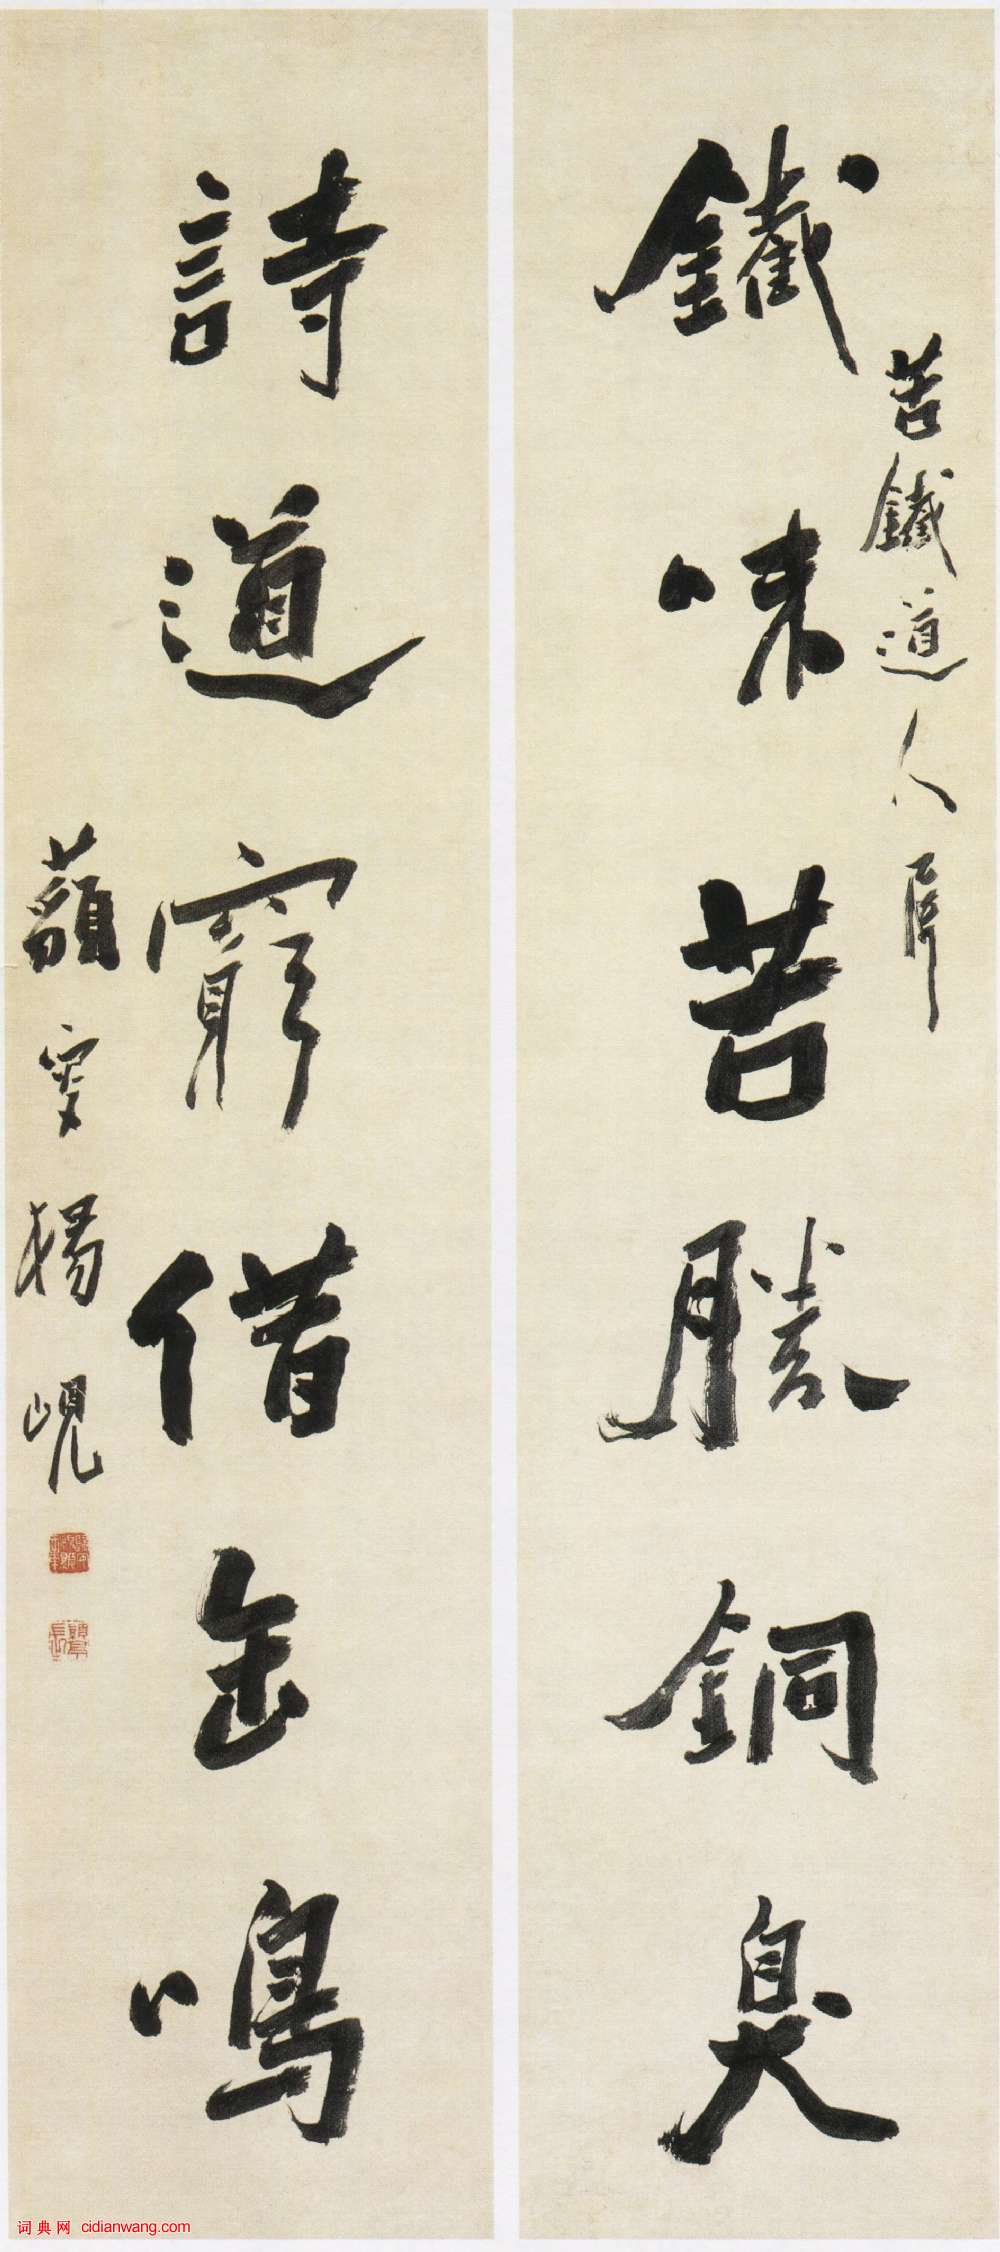 苦鐵道人
鐵味苦勝銅臭
詩道窮借缶鳴
藐叟楊峴
词典网 cidianwang.com